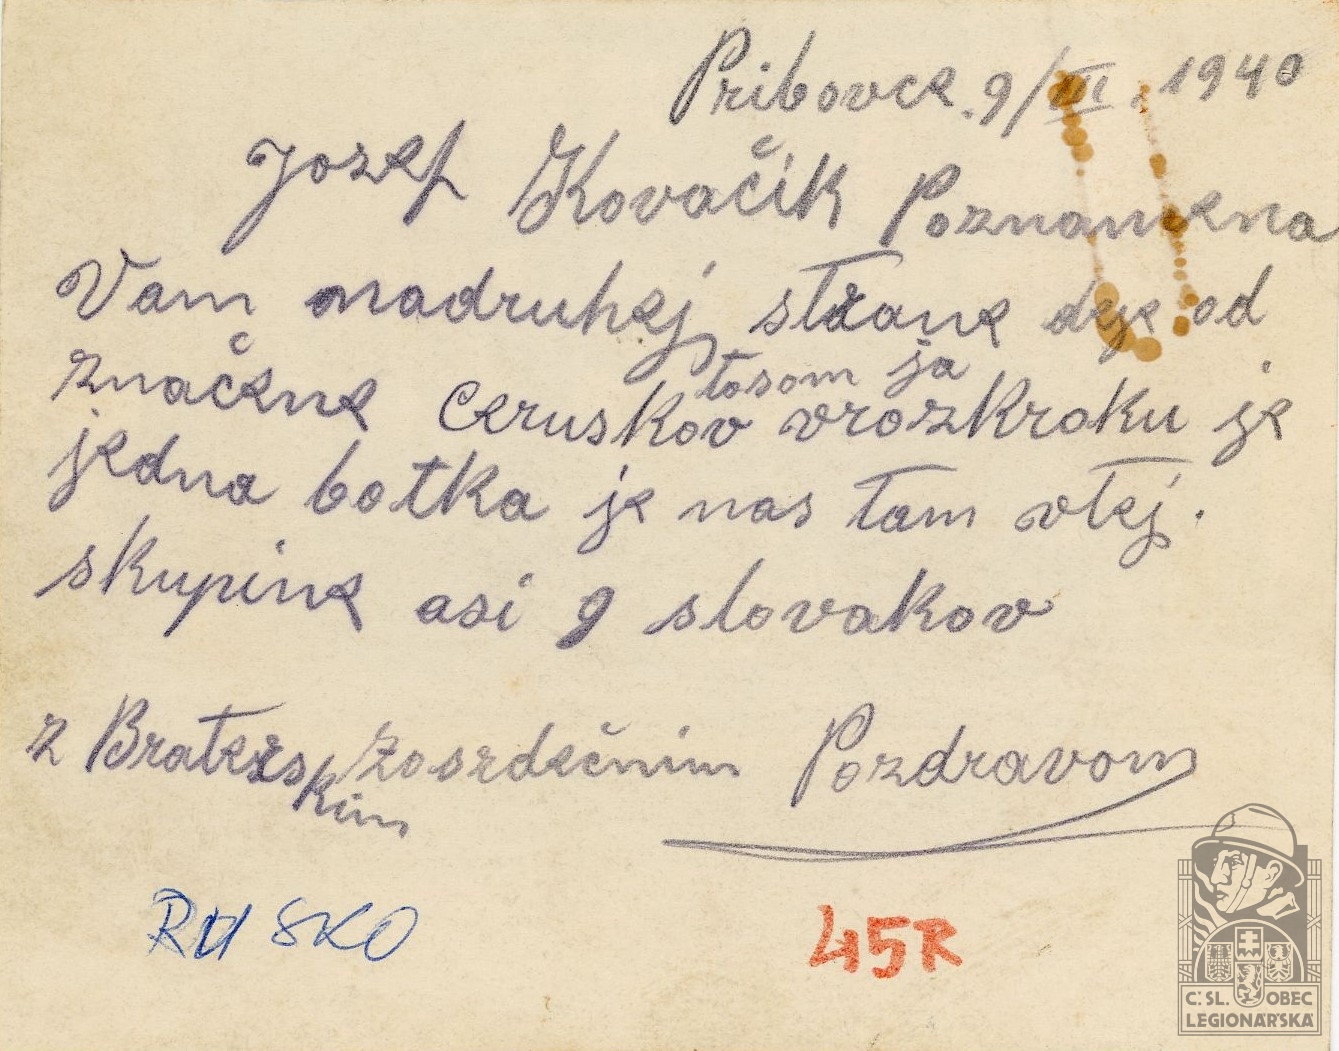 Pribovce. 9/III. 1940
Jozef Kovačik Poznamena
Vam nadruhej strane dje od
značene ceruskov tosom ja vrozkroku je
jedna botka je nas tam vtej.
skupine asi 9 slovakov
z Braterskim zosrdečnim Pozdravom
RUSKO
45R
Č.SL. OBEC
LEGIONÁŘSKÁ